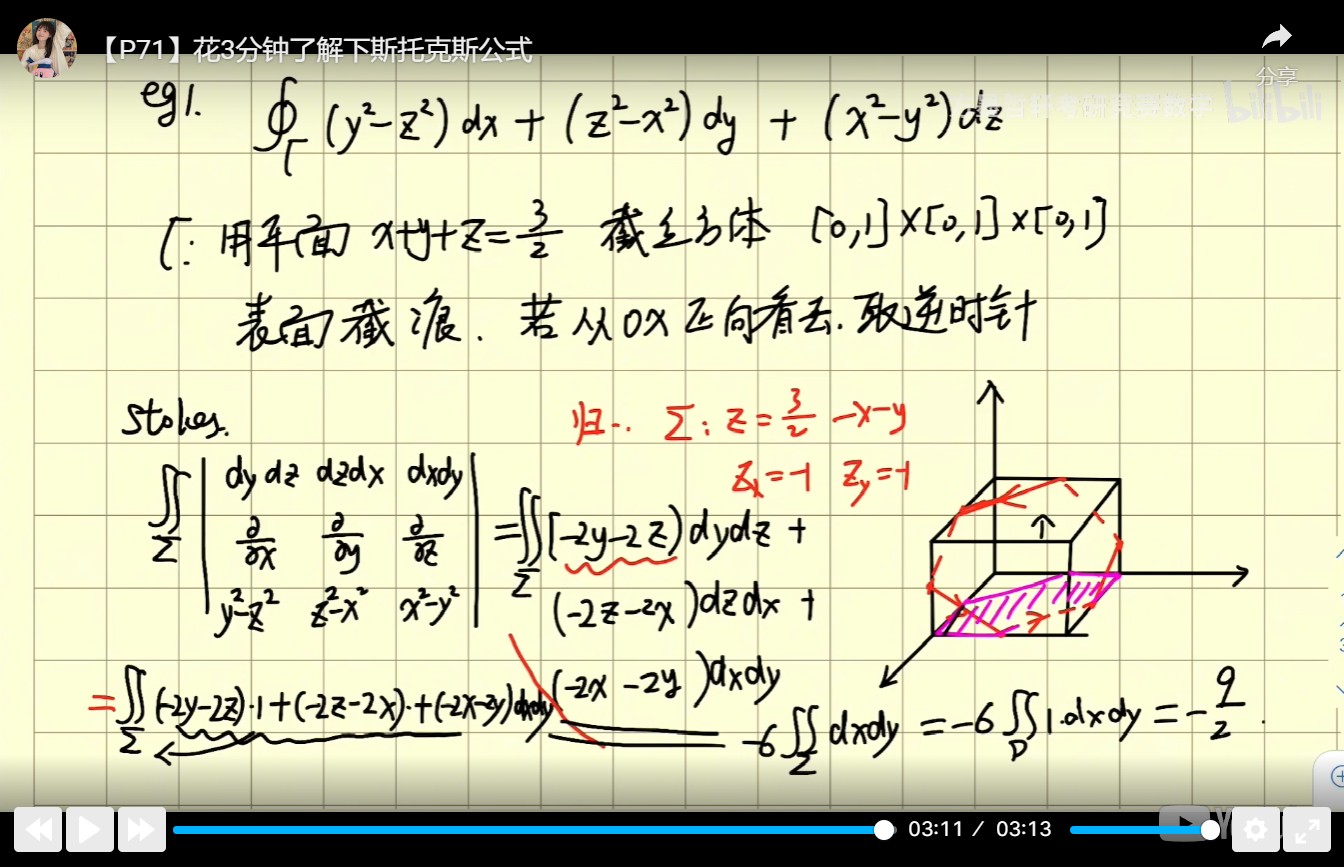 【P71】花3分钟了解下斯托克斯公式
分享
bilibili
eg1. ∮_Γ (y²-z²)dx + (z²-x²)dy + (x²-y²)dz
Γ: 用平面 x+y+z=3/2 截立方体 [0,1]×[0,1]×[0,1]
表面截痕. 若从OX正向看去. 取逆时针
Stokes.
归一. Σ: z=3/2-x-y
Zx=-1 Zy=-1
∬_Σ | dydz dzdx dxdy |
| ∂/∂x ∂/∂y ∂/∂z |
| y²-z² z²-x² x²-y² |
=∬_Σ (-2y-2z)dydz +
(-2z-2x)dzdx +
(-2x-2y)dxdy
=∬_Σ (-2y-2z)·1+(-2z-2x)·+(-2x-2y)dxdy
-6∬_Σ dxdy = -6∬_D 1·dxdy = -9/2.
03:11 / 03:13